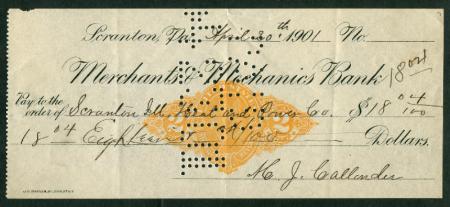 Scranton, Pa. April 30th 1901 No.
Merchants & Mechanics Bank
18 04
Pay to the
order of Scranton Ill. Heat and Power Co. $18 04/100
18 04 Eighteen & 04/100 Dollars.
M. J. Callender